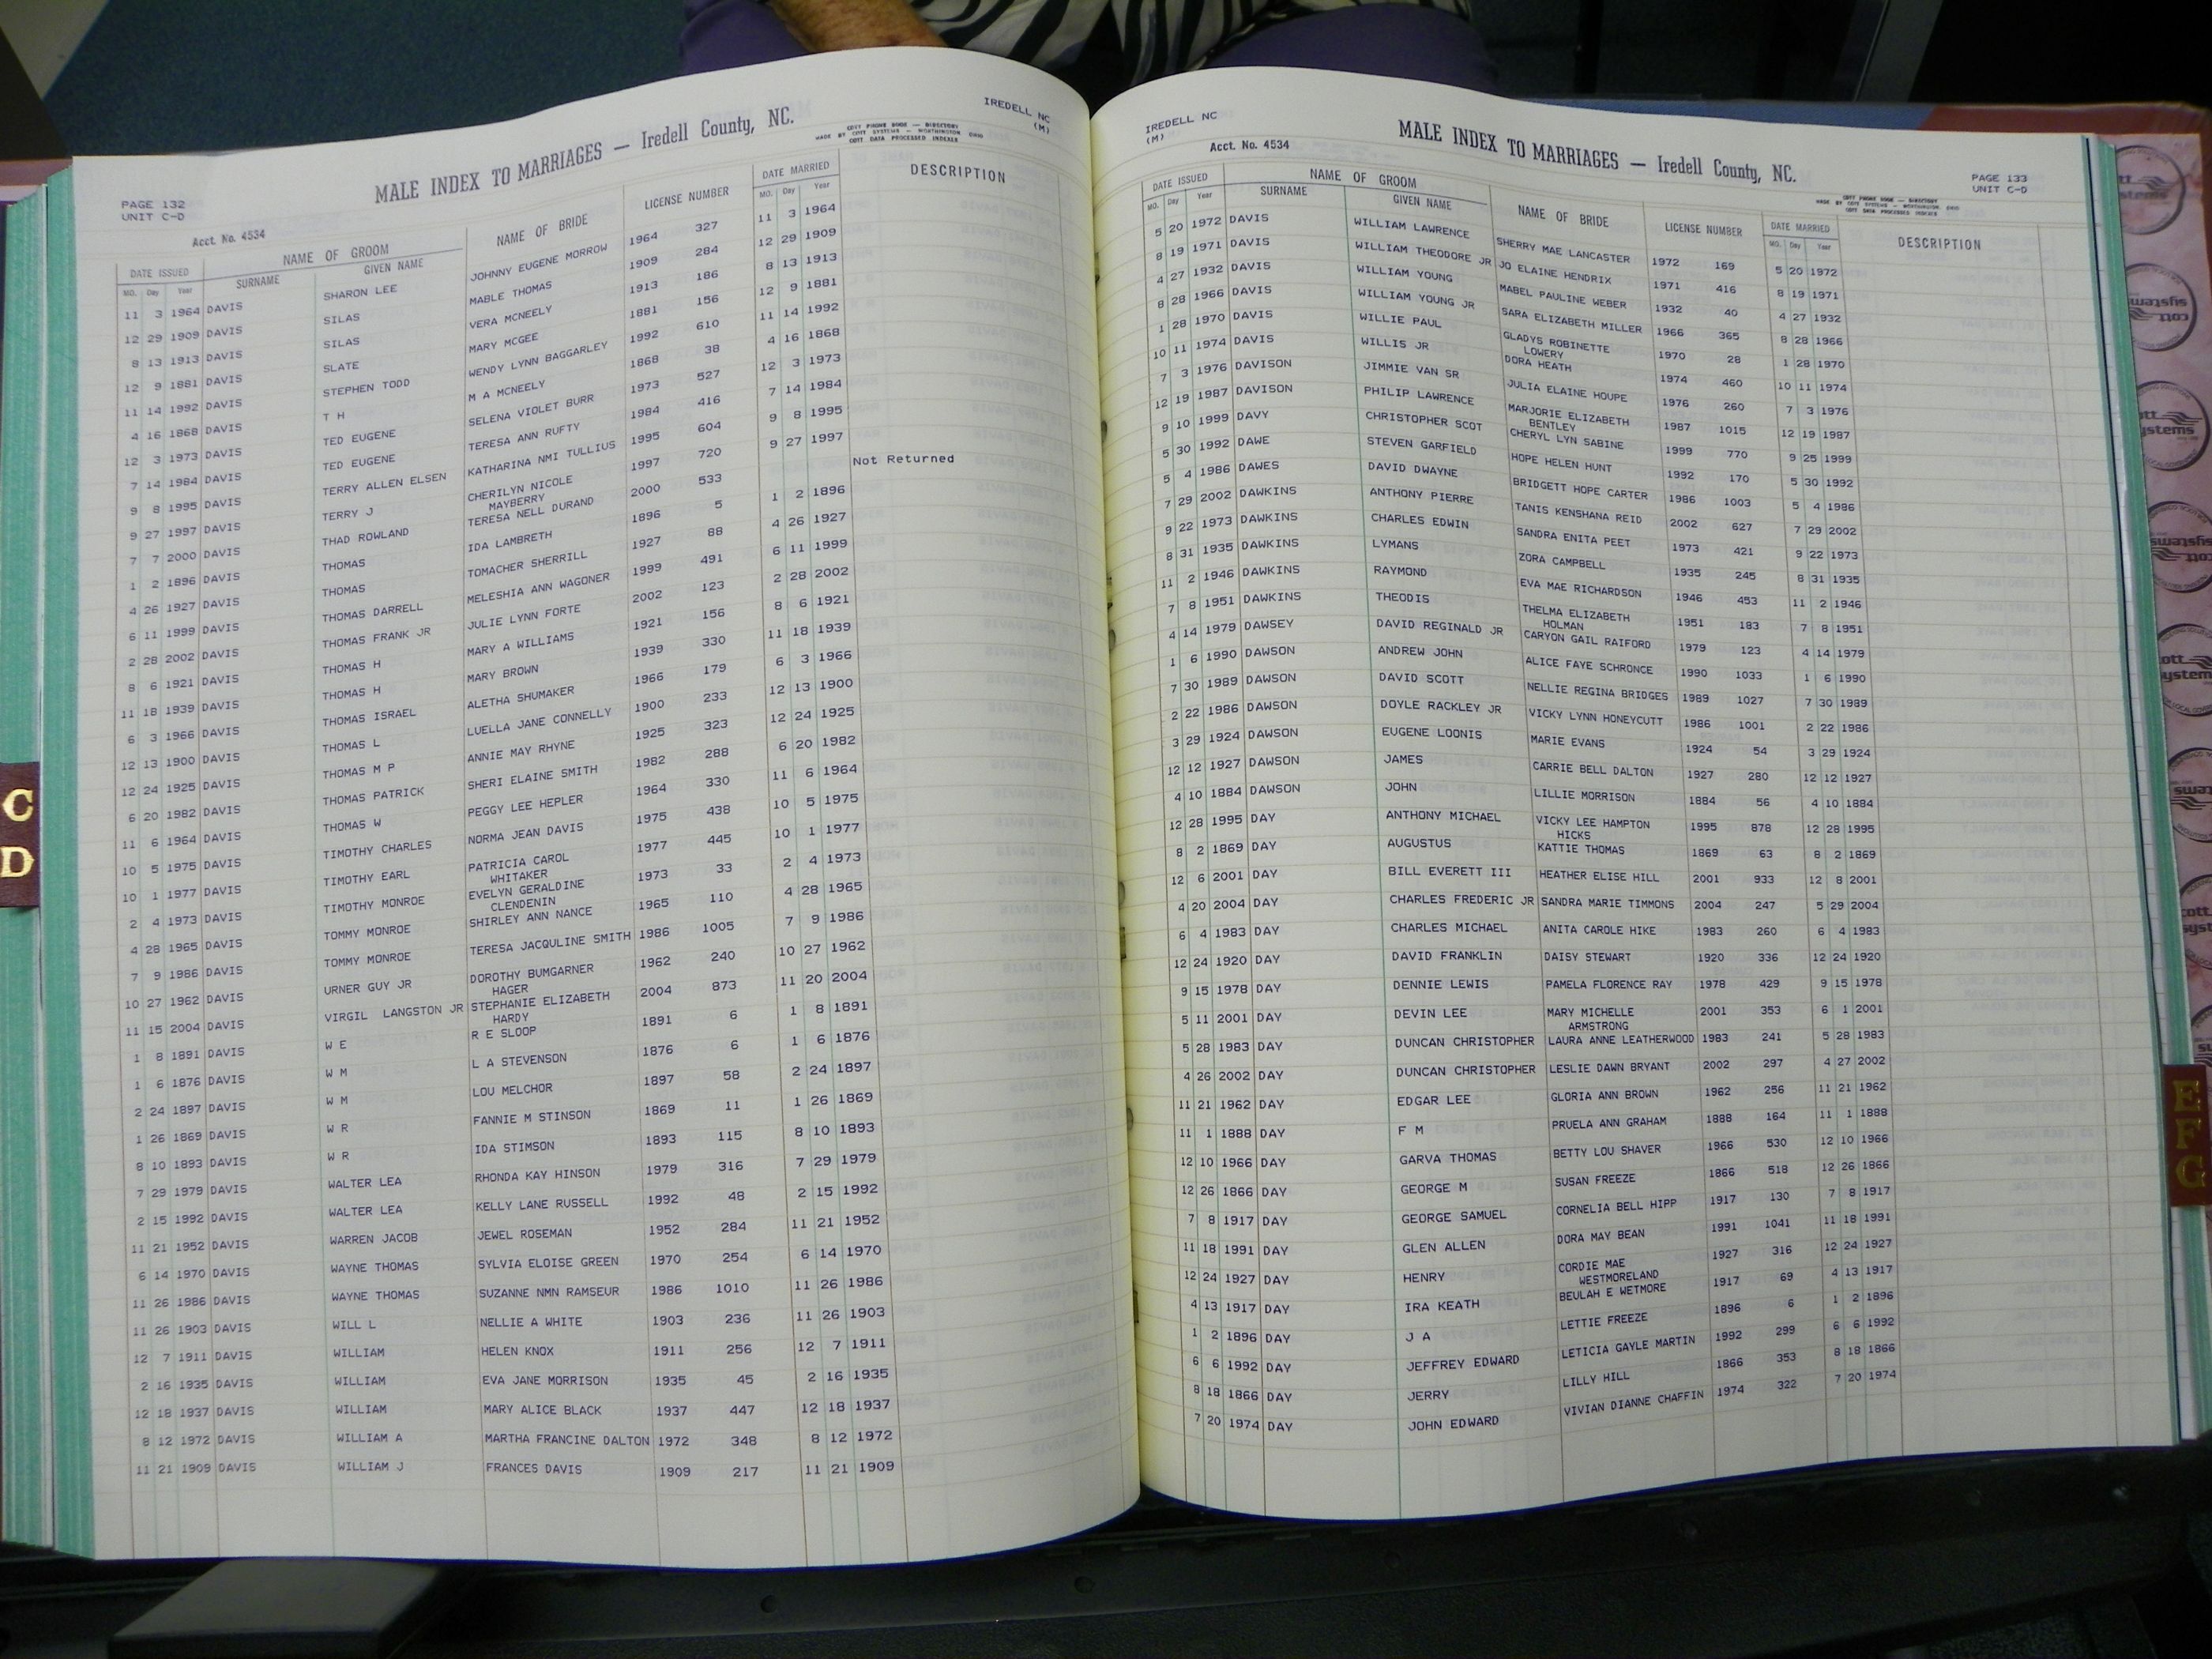 IREDELL NC
(M)
MALE INDEX TO MARRIAGES — Iredell County, NC.
COTT PHONE BOOK — DIRECTORY
MADE BY COTT SYSTEMS — WORTHINGTON, OHIO
COTT DATA PROCESSED INDEXES
PAGE 132
UNIT C-D
Acct. No. 4534
DATE ISSUED NAME OF GROOM NAME OF BRIDE LICENSE NUMBER DATE MARRIED DESCRIPTION
MO. Day Year SURNAME GIVEN NAME MO. Day Year
11 3 1964 DAVIS SHARON LEE JOHNNY EUGENE MORROW 1964 327 11 3 1964
12 29 1909 DAVIS SILAS MABLE THOMAS 1909 284 12 29 1909
8 13 1913 DAVIS SILAS VERA MCNEELY 1913 186 8 13 1913
12 9 1881 DAVIS SLATE MARY MCGEE 1881 156 12 9 1881
11 14 1992 DAVIS STEPHEN TODD WENDY LYNN BAGGARLEY 1992 610 11 14 1992
4 16 1868 DAVIS T H M A MCNEELY 1868 38 4 16 1868
12 3 1973 DAVIS TED EUGENE SELENA VIOLET BURR 1973 527 12 3 1973
7 14 1984 DAVIS TED EUGENE TERESA ANN RUFTY 1984 416 7 14 1984
9 8 1995 DAVIS TERRY ALLEN ELSEN KATHARINA NMI TULLIUS 1995 604 9 8 1995
9 27 1997 DAVIS TERRY J CHERILYN NICOLE 1997 720 9 27 1997
MAYBERRY
7 7 2000 DAVIS THAD ROWLAND TERESA NELL DURAND 2000 533 Not Returned
1 2 1896 DAVIS THOMAS IDA LAMBRETH 1896 5 1 2 1896
4 26 1927 DAVIS THOMAS TOMACHER SHERRILL 1927 88 4 26 1927
6 11 1999 DAVIS THOMAS DARRELL MELESHIA ANN WAGONER 1999 491 6 11 1999
2 28 2002 DAVIS THOMAS FRANK JR JULIE LYNN FORTE 2002 123 2 28 2002
8 6 1921 DAVIS THOMAS H MARY A WILLIAMS 1921 156 8 6 1921
11 18 1939 DAVIS THOMAS H MARY BROWN 1939 330 11 18 1939
6 3 1966 DAVIS THOMAS ISRAEL ALETHA SHUMAKER 1966 179 6 3 1966
12 13 1900 DAVIS THOMAS L LUELLA JANE CONNELLY 1900 233 12 13 1900
12 24 1925 DAVIS THOMAS M P ANNIE MAY RHYNE 1925 323 12 24 1925
6 20 1982 DAVIS THOMAS PATRICK SHERI ELAINE SMITH 1982 288 6 20 1982
11 6 1964 DAVIS THOMAS W PEGGY LEE HEPLER 1964 330 11 6 1964
10 5 1975 DAVIS TIMOTHY CHARLES NORMA JEAN DAVIS 1975 438 10 5 1975
10 1 1977 DAVIS TIMOTHY EARL PATRICIA CAROL 1977 445 10 1 1977
WHITAKER
2 4 1973 DAVIS TIMOTHY MONROE EVELYN GERALDINE 1973 33 2 4 1973
CLENDENIN
4 28 1965 DAVIS TOMMY MONROE SHIRLEY ANN NANCE 1965 110 4 28 1965
7 9 1986 DAVIS TOMMY MONROE TERESA JACQULINE SMITH 1986 1005 7 9 1986
10 27 1962 DAVIS URNER GUY JR DOROTHY BUMGARNER 1962 240 10 27 1962
HAGER
11 15 2004 DAVIS VIRGIL LANGSTON JR STEPHANIE ELIZABETH 2004 873 11 20 2004
HARDY
1 8 1891 DAVIS W E R E SLOOP 1891 6 1 8 1891
1 6 1876 DAVIS W M L A STEVENSON 1876 6 1 6 1876
2 24 1897 DAVIS W M LOU MELCHOR 1897 58 2 24 1897
1 26 1869 DAVIS W R FANNIE M STINSON 1869 11 1 26 1869
8 10 1893 DAVIS W R IDA STIMSON 1893 115 8 10 1893
7 29 1979 DAVIS WALTER LEA RHONDA KAY HINSON 1979 316 7 29 1979
2 15 1992 DAVIS WALTER LEA KELLY LANE RUSSELL 1992 48 2 15 1992
11 21 1952 DAVIS WARREN JACOB JEWEL ROSEMAN 1952 284 11 21 1952
6 14 1970 DAVIS WAYNE THOMAS SYLVIA ELOISE GREEN 1970 254 6 14 1970
11 26 1986 DAVIS WAYNE THOMAS SUZANNE NMN RAMSEUR 1986 1010 11 26 1986
11 26 1903 DAVIS WILL L NELLIE A WHITE 1903 236 11 26 1903
12 7 1911 DAVIS WILLIAM HELEN KNOX 1911 256 12 7 1911
2 16 1935 DAVIS WILLIAM EVA JANE MORRISON 1935 45 2 16 1935
12 18 1937 DAVIS WILLIAM MARY ALICE BLACK 1937 447 12 18 1937
8 12 1972 DAVIS WILLIAM A MARTHA FRANCINE DALTON 1972 348 8 12 1972
11 21 1909 DAVIS WILLIAM J FRANCES DAVIS 1909 217 11 21 1909
C
D
IREDELL NC
(M)
Acct. No. 4534
MALE INDEX TO MARRIAGES — Iredell County, NC.
PAGE 133
UNIT C-D
COTT PHONE BOOK — DIRECTORY
MADE BY COTT SYSTEMS — WORTHINGTON, OHIO
COTT DATA PROCESSED INDEXES
DATE ISSUED NAME OF GROOM NAME OF BRIDE LICENSE NUMBER DATE MARRIED DESCRIPTION
MO. Day Year SURNAME GIVEN NAME MO. Day Year
5 20 1972 DAVIS WILLIAM LAWRENCE SHERRY MAE LANCASTER 1972 169 5 20 1972
8 19 1971 DAVIS WILLIAM THEODORE JR JO ELAINE HENDRIX 1971 416 8 19 1971
4 27 1932 DAVIS WILLIAM YOUNG MABEL PAULINE WEBER 1932 40 4 27 1932
8 28 1966 DAVIS WILLIAM YOUNG JR SARA ELIZABETH MILLER 1966 365 8 28 1966
1 28 1970 DAVIS WILLIE PAUL GLADYS ROBINETTE 1970 28 1 28 1970
LOWERY
10 11 1974 DAVIS WILLIS JR DORA HEATH 1974 460 10 11 1974
7 3 1976 DAVISON JIMMIE VAN SR JULIA ELAINE HOUPE 1976 260 7 3 1976
12 19 1987 DAVISON PHILIP LAWRENCE MARJORIE ELIZABETH 1987 1015 12 19 1987
BENTLEY
9 10 1999 DAVY CHRISTOPHER SCOT CHERYL LYN SABINE 1999 770 9 25 1999
5 30 1992 DAWE STEVEN GARFIELD HOPE HELEN HUNT 1992 170 5 30 1992
5 4 1986 DAWES DAVID DWAYNE BRIDGETT HOPE CARTER 1986 1003 5 4 1986
7 29 2002 DAWKINS ANTHONY PIERRE TANIS KENSHANA REID 2002 627 7 29 2002
9 22 1973 DAWKINS CHARLES EDWIN SANDRA ENITA PEET 1973 421 9 22 1973
8 31 1935 DAWKINS LYMANS ZORA CAMPBELL 1935 245 8 31 1935
11 2 1946 DAWKINS RAYMOND EVA MAE RICHARDSON 1946 453 11 2 1946
7 8 1951 DAWKINS THEODIS THELMA ELIZABETH 1951 183 7 8 1951
HOLMAN
4 14 1979 DAWSEY DAVID REGINALD JR CARYON GAIL RAIFORD 1979 123 4 14 1979
1 6 1990 DAWSON ANDREW JOHN ALICE FAYE SCHRONCE 1990 1033 1 6 1990
7 30 1989 DAWSON DAVID SCOTT NELLIE REGINA BRIDGES 1989 1027 7 30 1989
2 22 1986 DAWSON DOYLE RACKLEY JR VICKY LYNN HONEYCUTT 1986 1001 2 22 1986
3 29 1924 DAWSON EUGENE LOONIS MARIE EVANS 1924 54 3 29 1924
12 12 1927 DAWSON JAMES CARRIE BELL DALTON 1927 280 12 12 1927
4 10 1884 DAWSON JOHN LILLIE MORRISON 1884 56 4 10 1884
12 28 1995 DAY ANTHONY MICHAEL VICKY LEE HAMPTON 1995 878 12 28 1995
HICKS
8 2 1869 DAY AUGUSTUS KATTIE THOMAS 1869 63 8 2 1869
12 6 2001 DAY BILL EVERETT III HEATHER ELISE HILL 2001 933 12 8 2001
4 20 2004 DAY CHARLES FREDERIC JR SANDRA MARIE TIMMONS 2004 247 5 29 2004
6 4 1983 DAY CHARLES MICHAEL ANITA CAROLE HIKE 1983 260 6 4 1983
12 24 1920 DAY DAVID FRANKLIN DAISY STEWART 1920 336 12 24 1920
9 15 1978 DAY DENNIE LEWIS PAMELA FLORENCE RAY 1978 429 9 15 1978
5 11 2001 DAY DEVIN LEE MARY MICHELLE 2001 353 6 1 2001
ARMSTRONG
5 28 1983 DAY DUNCAN CHRISTOPHER LAURA ANNE LEATHERWOOD 1983 241 5 28 1983
4 26 2002 DAY DUNCAN CHRISTOPHER LESLIE DAWN BRYANT 2002 297 4 27 2002
11 21 1962 DAY EDGAR LEE GLORIA ANN BROWN 1962 256 11 21 1962
11 1 1888 DAY F M PRUELA ANN GRAHAM 1888 164 11 1 1888
12 10 1966 DAY GARVA THOMAS BETTY LOU SHAVER 1966 530 12 10 1966
12 26 1866 DAY GEORGE M SUSAN FREEZE 1866 518 12 26 1866
7 8 1917 DAY GEORGE SAMUEL CORNELIA BELL HIPP 1917 130 7 8 1917
11 18 1991 DAY GLEN ALLEN DORA MAY BEAN 1991 1041 11 18 1991
12 24 1927 DAY HENRY CORDIE MAE 1927 316 12 24 1927
WESTMORELAND
4 13 1917 DAY IRA KEATH BEULAH E WETMORE 1917 69 4 13 1917
1 2 1896 DAY J A LETTIE FREEZE 1896 6 1 2 1896
6 6 1992 DAY JEFFREY EDWARD LETICIA GAYLE MARTIN 1992 299 6 6 1992
8 18 1866 DAY JERRY LILLY HILL 1866 353 8 18 1866
7 20 1974 DAY JOHN EDWARD VIVIAN DIANNE CHAFFIN 1974 322 7 20 1974
E
F
G